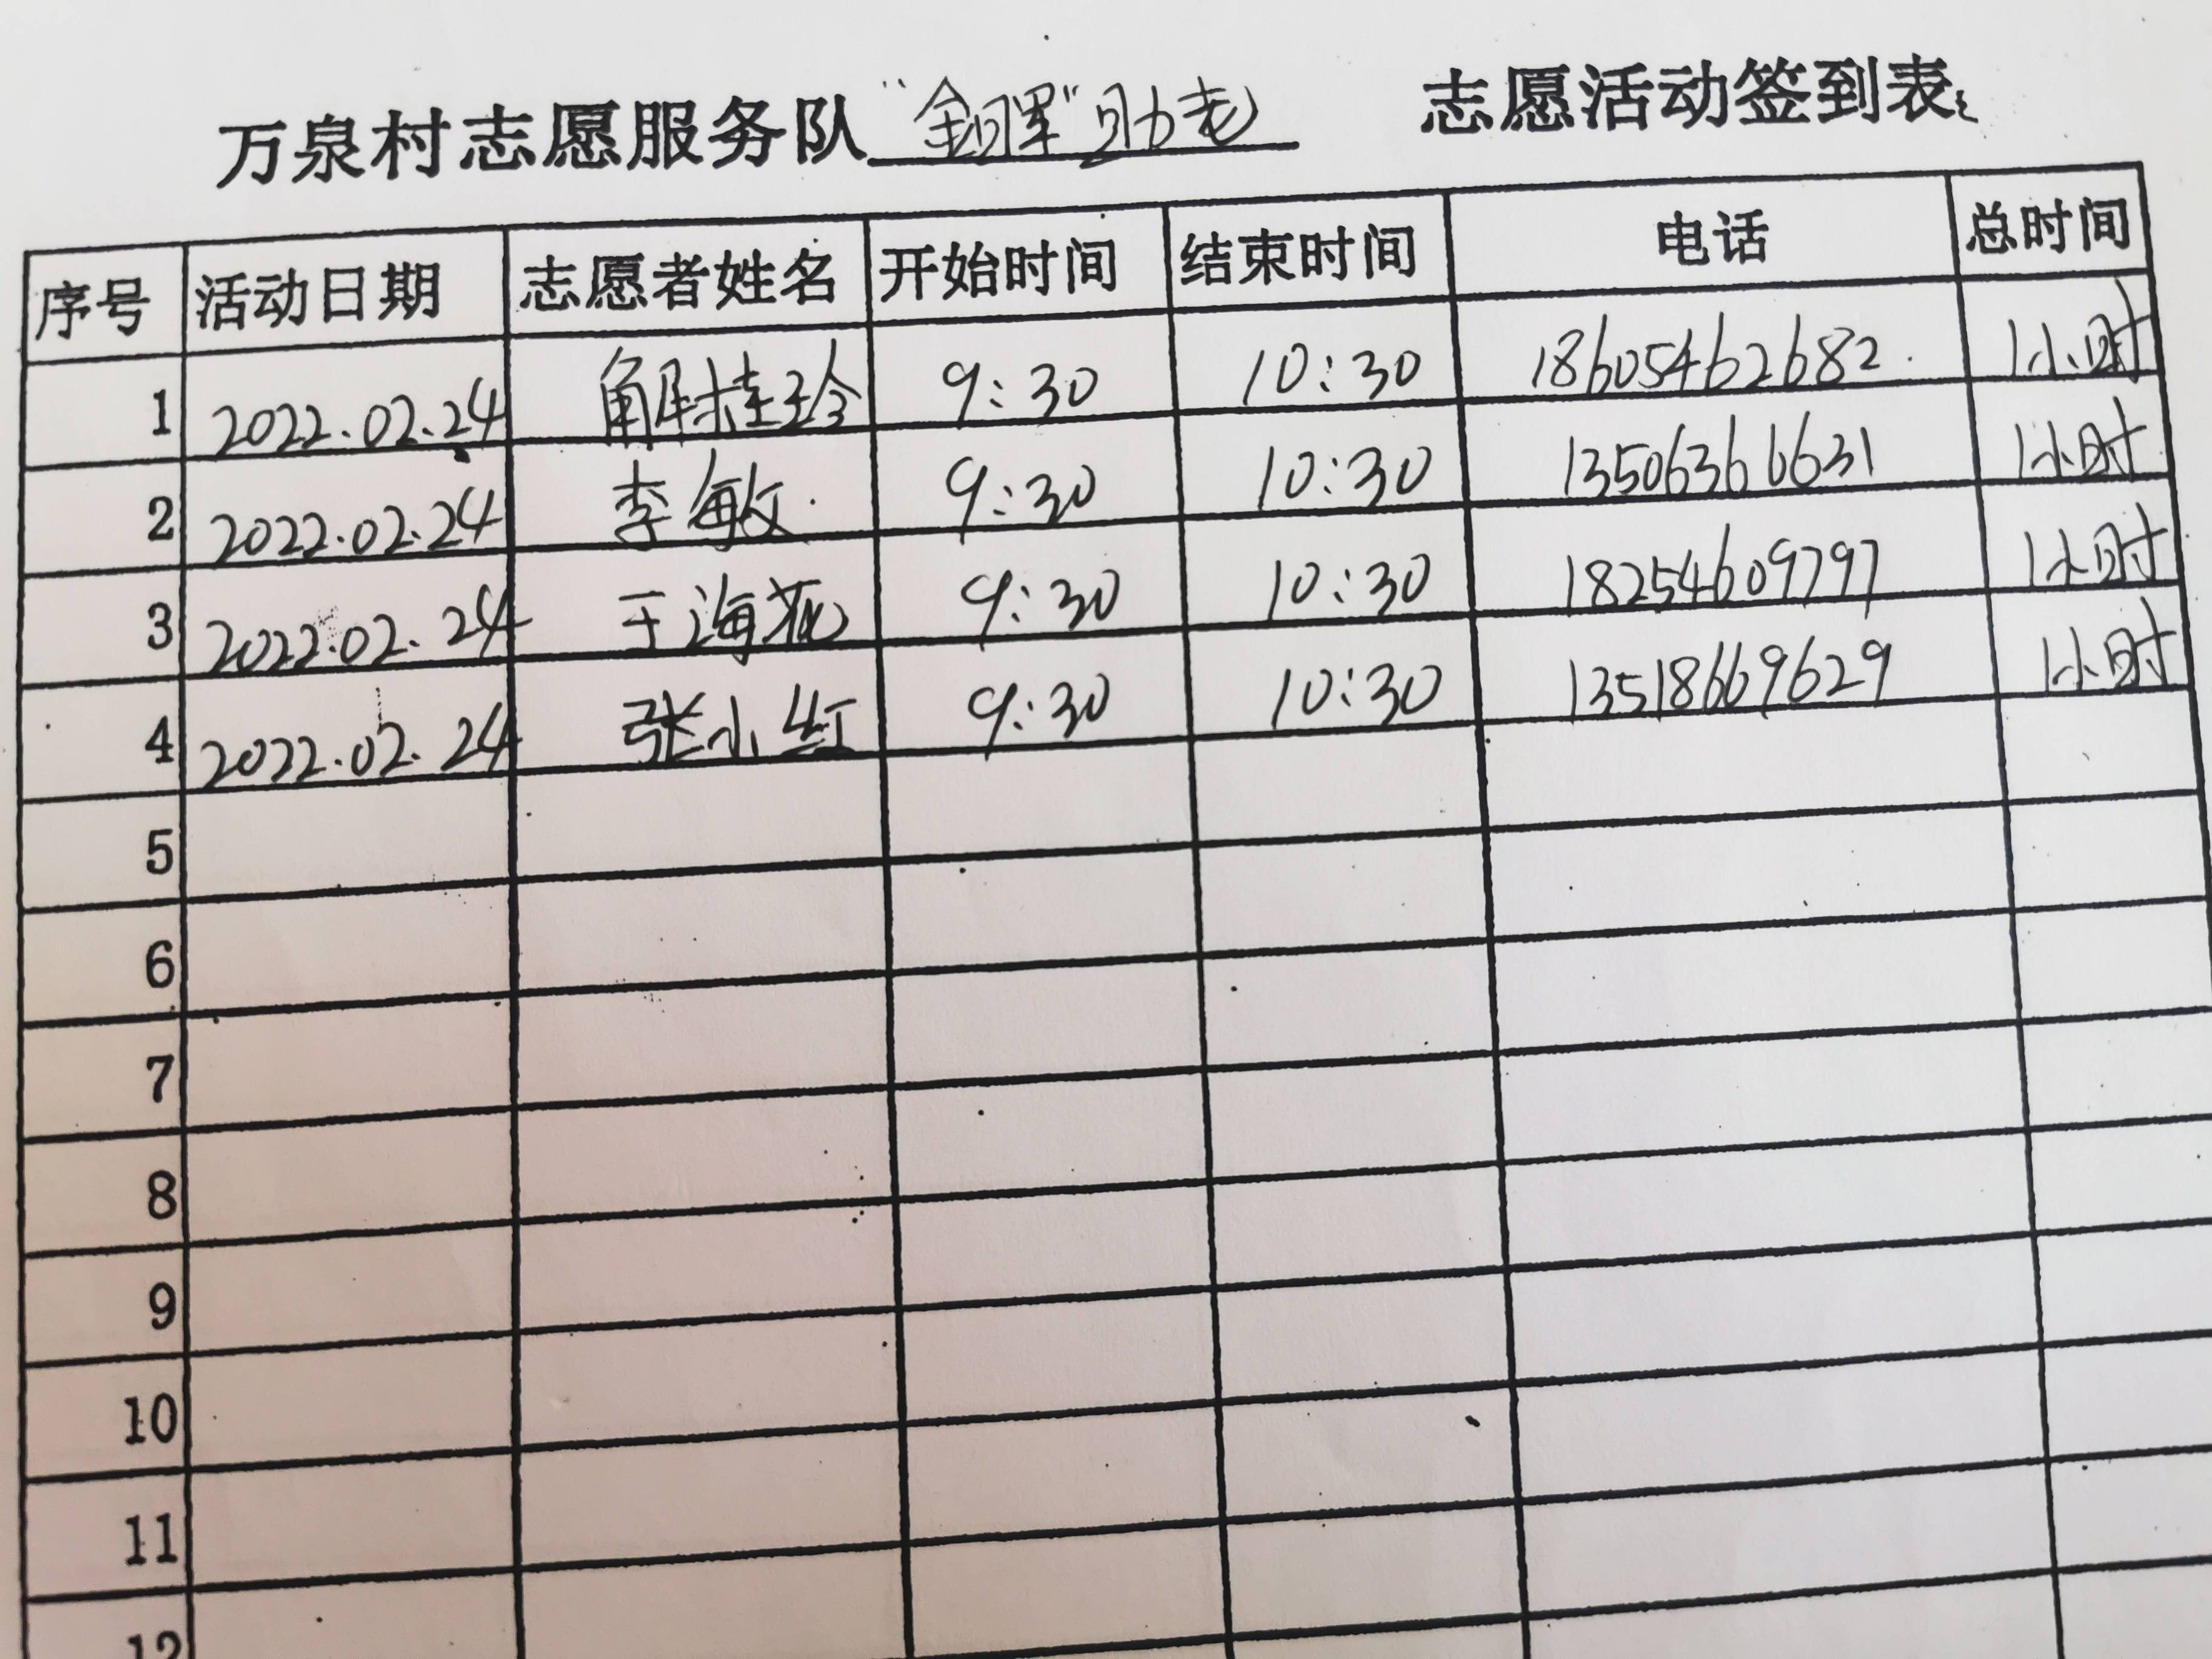 万泉村志愿服务队“金晖”助老 志愿活动签到表
序号 活动日期 志愿者姓名 开始时间 结束时间 电话 总时间
1 2022.02.24 解桂玲 9:30 10:30 18605462682 1小时
2 2022.02.24 李敏 9:30 10:30 13506361631 1小时
3 2022.02.24 于海花 9:30 10:30 18254609797 1小时
4 2022.02.24 张小红 9:30 10:30 13518669629 1小时
5
6
7
8
9
10
11
12